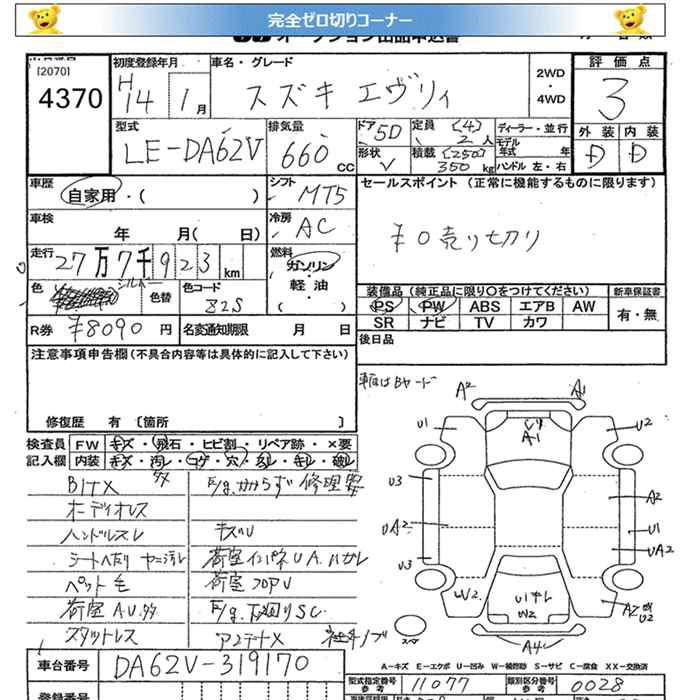 完全ゼロ切りコーナー
オークション出品申込書
[2070]
4370
初度登録年月
H14 1月
車名・グレード
スズキ エヴリィ
2WD・4WD
評価点
3
外装 内装
D D
型式
LE-DA62V
排気量
660cc
ドア 5D
形状 V
定員 (4) 2人
積載 (250) 350kg
ディーラー・並行
モデル年式 年
ハンドル 左・右
車歴
自家用・( )
シフト MT5
セールスポイント (正常に機能するものに限ります)
¥0売り切り
車検
年 月( 日)
冷房 AC
走行
27万7千923km
燃料
ガソリン・軽油・( )
色 シルバー
色替
色コード
82S
装備品 (純正品に限り○をつけてください)
新車保証書
PS PW ABS エアB AW
有・無
SR ナビ TV カワ
R券 ¥8090円
名変通知期限 月 日
後日品
注意事項申告欄(不具合内容等は具体的に記入して下さい)
修復歴 有 〔箇所 〕
検査員記入欄
FW キズ・飛石・ヒビ割・リペア跡・×要
内装 キズ・汚レ・コゲ・穴・スレ・キレ・破レ
E/g.かからず 修理要
オーディオレス
ハンドルスレ
キズU
シートヘタリ ヤニ汚レ
荷室インパネUA.ハガレ
ペット毛
荷室フロアU
荷室A.U.多
E/g.下廻りSC.
スタットレス
アンテナX
車台番号
DA62V-319170
登録番号
A2
A1
U1
U2
A1
U3
A2
UA2
U1
U3
UA2
W2
A4
A-キズ E-エクボ U-凹み W-補修跡 S-サビ C-腐食 XX-交換済
型式指定番号 参考
11077
類別区分番号 参考
0028